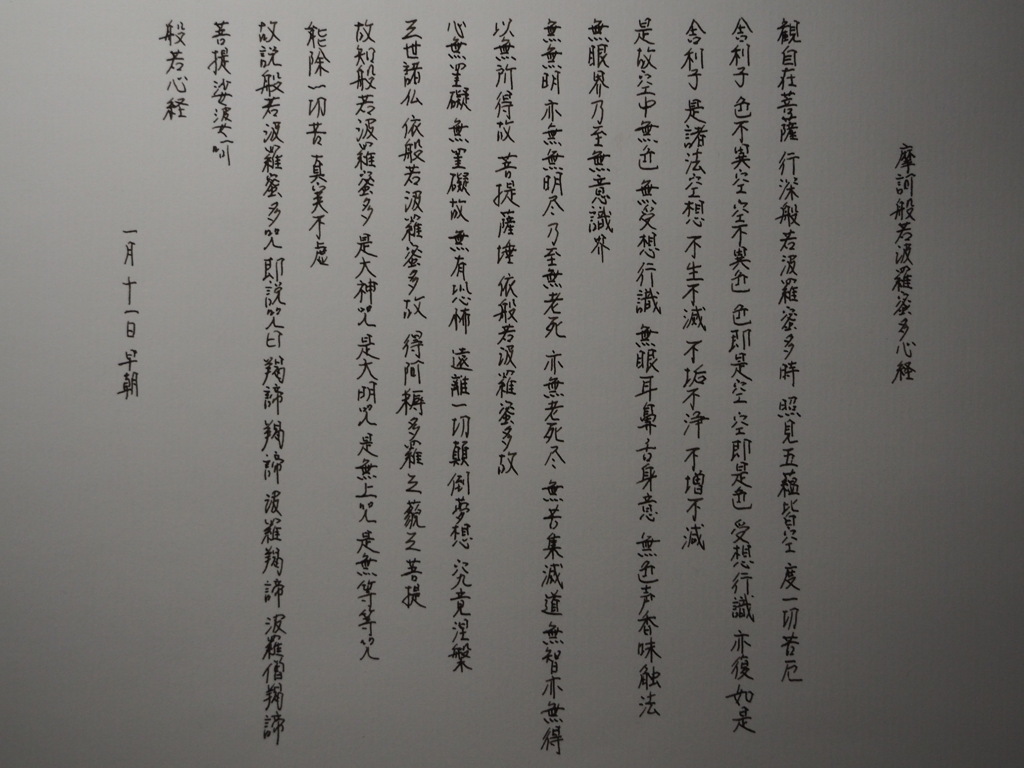 摩訶般若波羅蜜多心経
観自在菩薩 行深般若波羅蜜多時 照見五蘊皆空 度一切苦厄
舎利子 色不異空 空不異色 色即是空 空即是色 受想行識 亦復如是
舎利子 是諸法空想 不生不滅 不垢不浄 不増不減
是故空中無色 無受想行識 無眼耳鼻舌身意 無色声香味触法
無眼界乃至無意識界
無無明亦無無明尽 乃至無老死 亦無老死尽 無苦集滅道 無智亦無得
以無所得故 菩提薩埵 依般若波羅蜜多故
心無罣礙 無罣礙故 無有恐怖 遠離一切顛倒夢想 究竟涅槃
三世諸仏 依般若波羅蜜多故 得阿耨多羅三藐三菩提
故知般若波羅蜜多 是大神咒 是大明咒 是無上咒 是無等等咒
能除一切苦 真実不虚
故説般若波羅蜜多咒 即説咒曰 羯諦 羯諦 波羅羯諦 波羅僧羯諦
菩提娑婆訶
般若心経
一月十一日 早朝